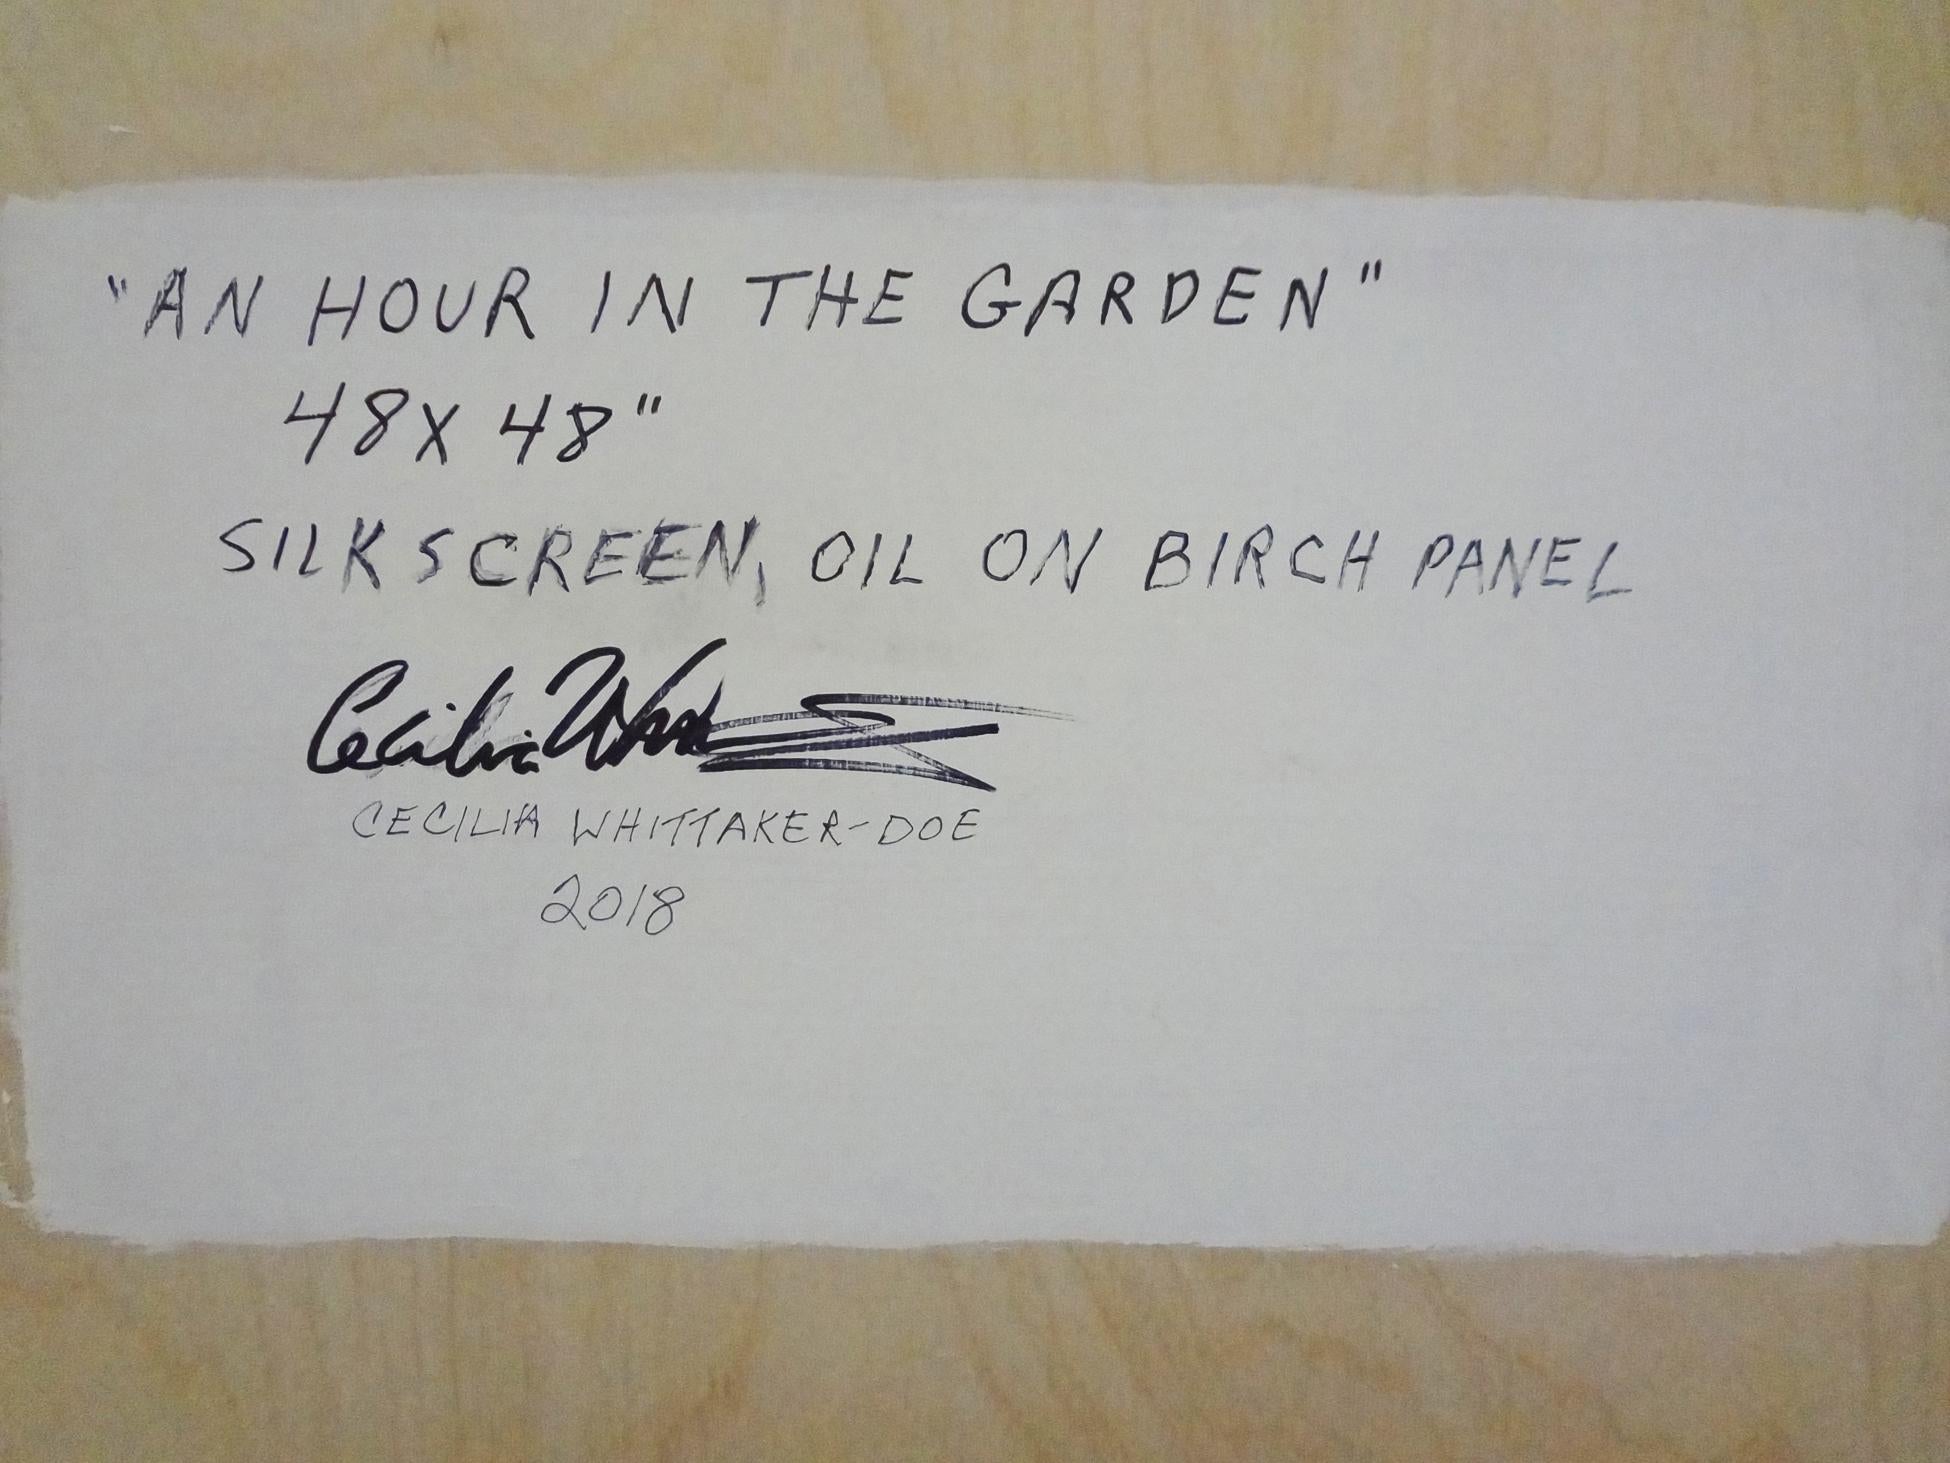 "AN HOUR IN THE GARDEN"
48X 48"
SILKSCREEN, OIL ON BIRCH PANEL
Cecilia
CECILIA WHITTAKER-DOE
2018